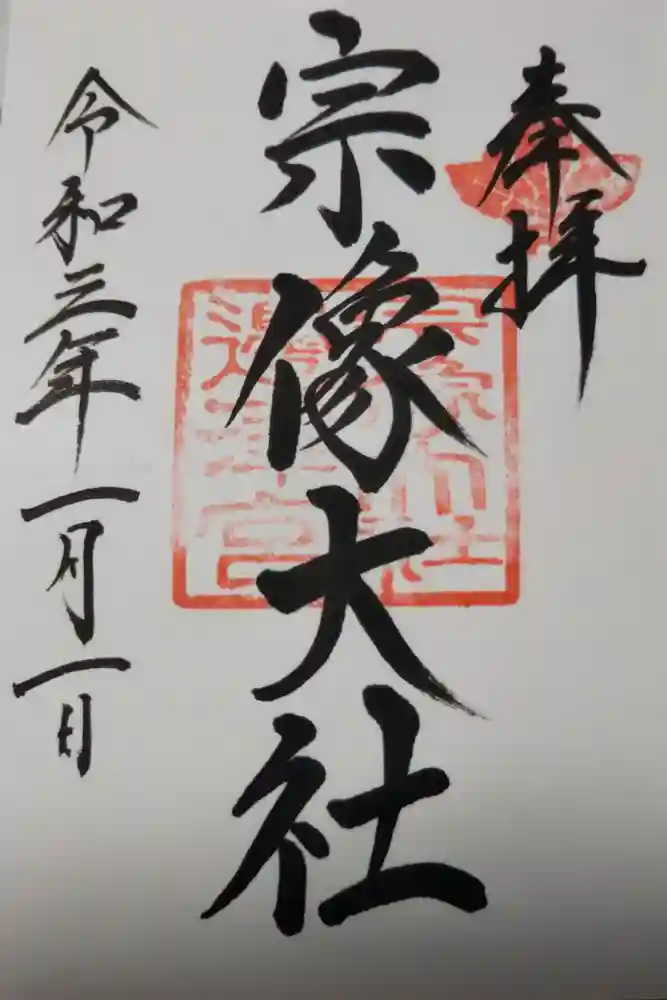 奉拝
宗像大社
宗像大社
邊津宮
令和三年一月一日